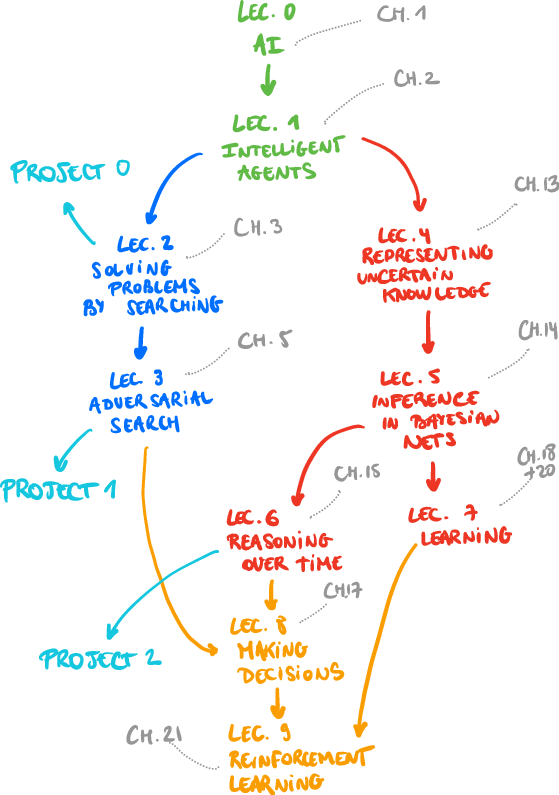 LEC. 0
CH. 1
AI
CH. 2
LEC. 1
INTELLIGENT
AGENTS
PROJECT 0
CH. 13
LEC. 2
SOLVING
PROBLEMS
BY SEARCHING
CH. 3
LEC. 4
REPRESENTING
UNCERTAIN
KNOWLEDGE
CH. 14
CH. 5
LEC. 3
ADVERSARIAL
SEARCH
LEC. 5
INFERENCE
IN BAYESIAN
NETS
PROJECT 1
CH. 15
CH. 18
+20
LEC. 6
REASONING
OVER TIME
LEC. 7
LEARNING
CH.17
PROJECT 2
LEC. 8
MAKING
DECISIONS
CH. 21
LEC. 9
REINFORCEMENT
LEARNING